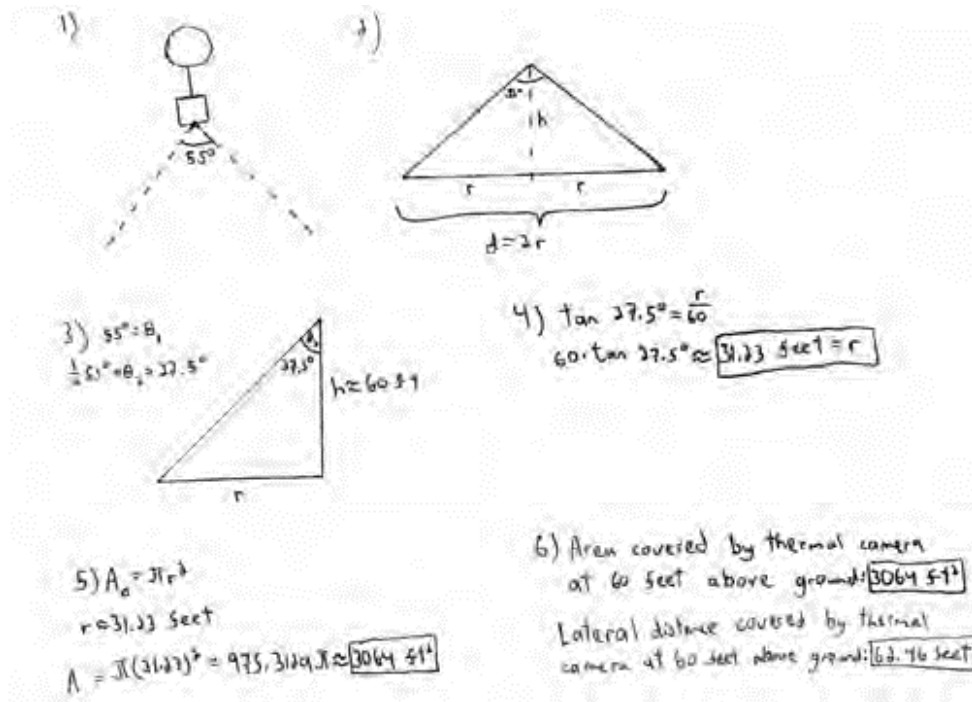 1)
55°
2)
55°
h
r r
d=2r
3) 55°=θ₁
½55°=θ₂=27.5°
θ₂
27.5°
h≈60 ft
r
4) tan 27.5°=r/60
60·tan 27.5°≈31.23 feet=r
5) Aₒ=πr²
r≈31.23 feet
A = π(31.23)² = 975.3129π≈3064 ft²
6) Area covered by thermal camera
at 60 feet above ground: 3064 ft²
Lateral distance covered by thermal
camera at 60 feet above ground: 62.46 feet